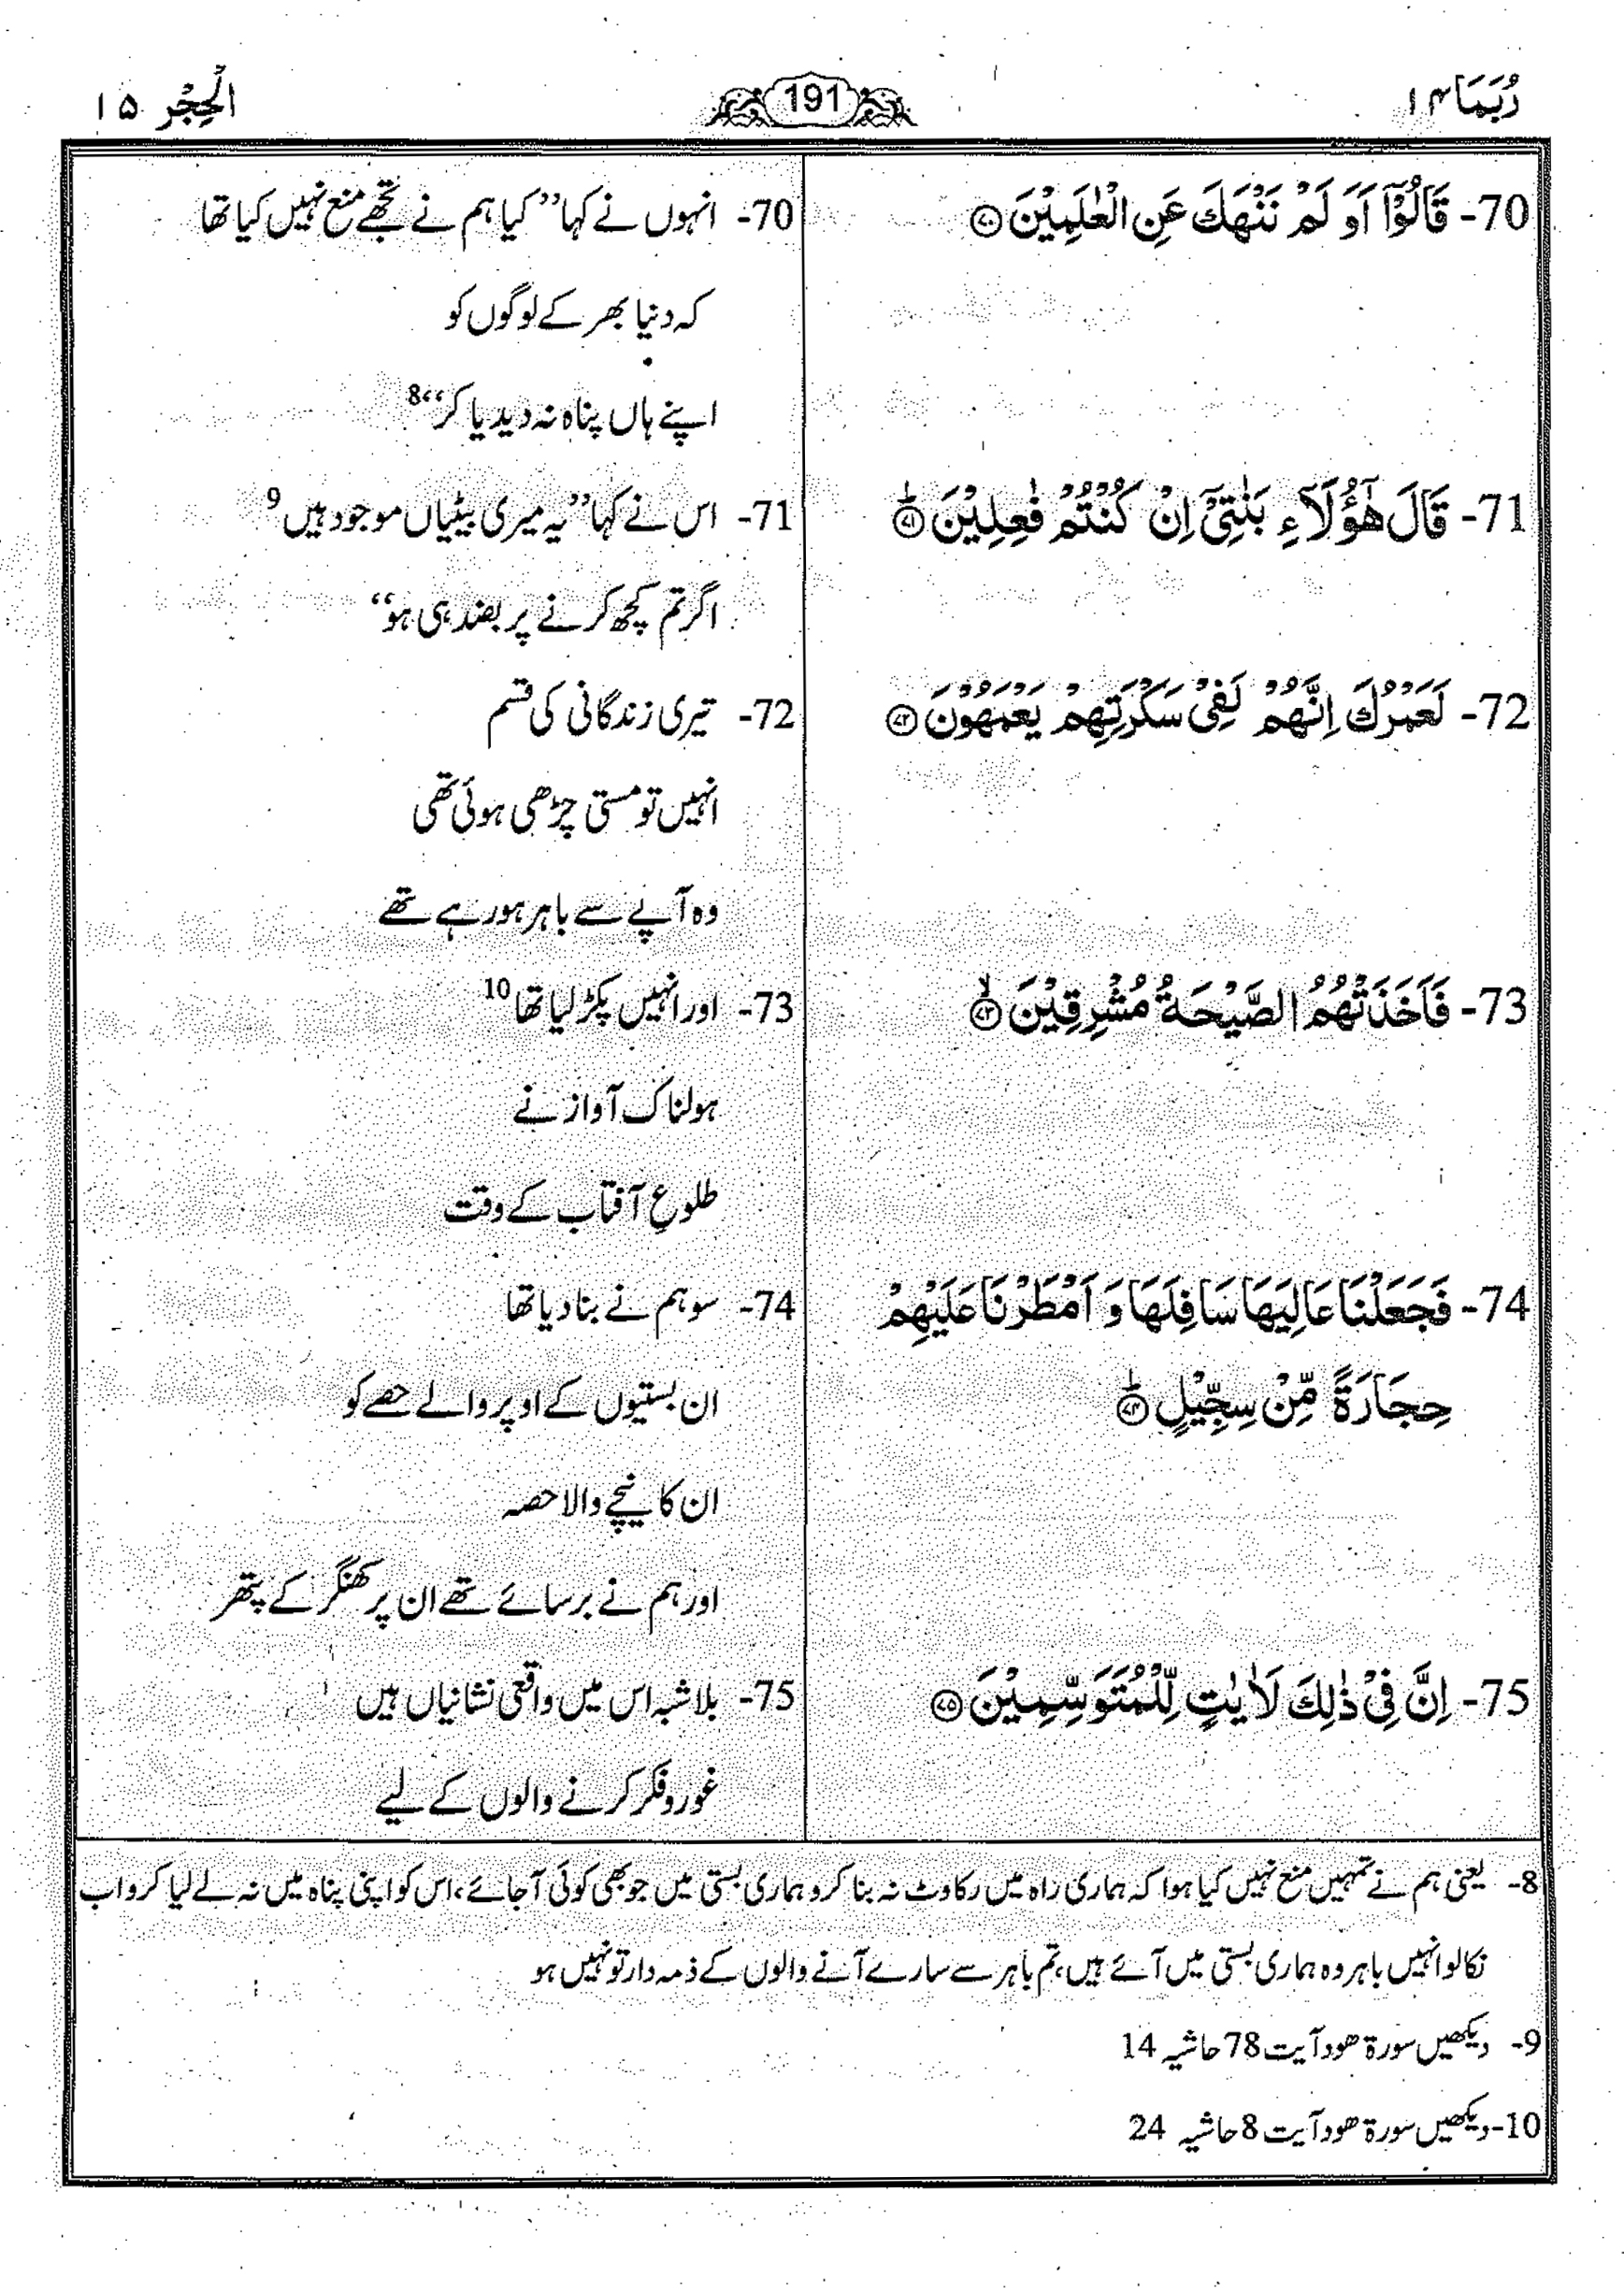 رُبَمَا ۱۴
191
الْحِجْر ۱۵
70- قَالُوْۤا اَوَ لَمْ نَنْهَكَ عَنِ الْعٰلَمِيْنَ ﴿۷۰﴾
70- انہوں نے کہا ”کیا ہم نے تجھے منع نہیں کیا تھا
کہ دنیا بھر کے لوگوں کو
اپنے ہاں پناہ نہ دیدیا کر“ 8
71- قَالَ هٰۤؤُلَآءِ بَنٰتِیْۤ اِنْ كُنْتُمْ فٰعِلِيْنَ ﴿۷۱﴾ؕ
71- اس نے کہا ”یہ میری بیٹیاں موجود ہیں 9
اگر تم کچھ کرنے پر بضد ہی ہو“
72- لَعَمْرُكَ اِنَّهُمْ لَفِیْ سَكْرَتِهِمْ يَعْمَهُوْنَ ﴿۷۲﴾
72- تیری زندگانی کی قسم
انہیں تو مستی چڑھی ہوئی تھی
وہ آپے سے باہر ہو رہے تھے
73- فَاَخَذَتْهُمُ الصَّيْحَةُ مُشْرِقِيْنَ ﴿۷۳﴾ۙ
73- اور انہیں پکڑ لیا تھا 10
ہولناک آواز نے
طلوعِ آفتاب کے وقت
74- فَجَعَلْنَا عَالِيَهَا سَافِلَهَا وَ اَمْطَرْنَا عَلَيْهِمْ
حِجَارَةً مِّنْ سِجِّيْلٍ ﴿۷۴﴾ؕ
74- سو ہم نے بنا دیا تھا
ان بستیوں کے اوپر والے حصے کو
ان کا نیچے والا حصہ
اور ہم نے برسائے تھے ان پر کھنگر کے پتھر
75- اِنَّ فِیْ ذٰلِكَ لَاٰيٰتٍ لِّلْمُتَوَسِّمِيْنَ ﴿۷۵﴾
75- بلا شبہ اس میں واقعی نشانیاں ہیں
غور و فکر کرنے والوں کے لیے
8- یعنی ہم نے تمہیں منع نہیں کیا ہوا کہ ہماری راہ میں رکاوٹ نہ بنا کرو ہماری بستی میں جو بھی کوئی آجائے، اس کو اپنی پناہ میں نہ لے لیا کرو اب
نکالو انہیں باہر وہ ہماری بستی میں آئے ہیں، تم باہر سے سارے آنے والوں کے ذمہ دار تو نہیں ہو
9- دیکھیں سورۃ ھود آیت 78 حاشیہ 14
10- دیکھیں سورۃ ھود آیت 8 حاشیہ 24